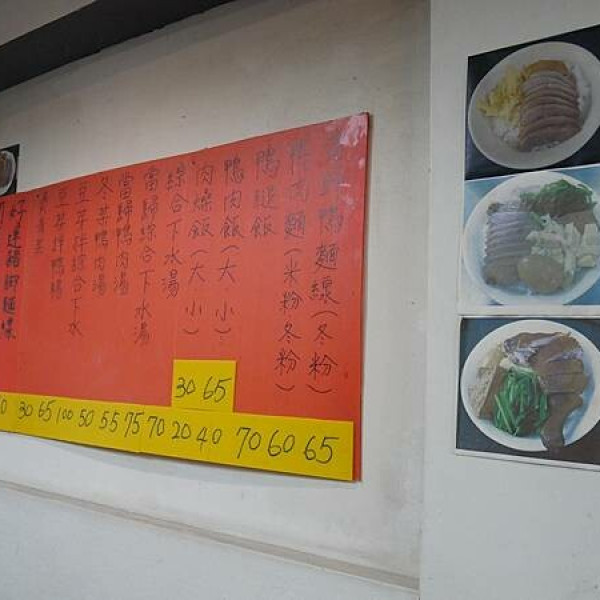 當歸鴨麵線(冬粉)
鴨肉麵(米粉冬粉)
鴨腿飯
鴨肉飯(大 小)
肉燥飯(大 小)
綜合下水湯
當歸綜合下水湯
當歸鴨肉湯
冬菜鴨肉湯
豆芽拌綜合下水
豆芽拌鴨腸
30 65
0 30 65 100 50 55 75 70 20 40 70 60 65